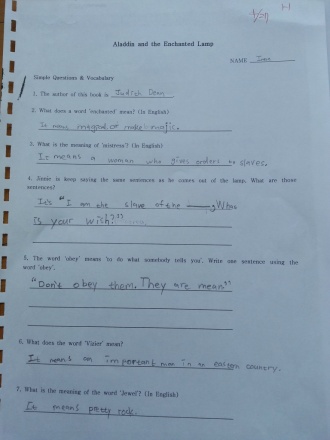 Aladdin and the Enchanted Lamp
NAME
Simple Questions & Vocabulary
1. The author of this book is Judith Dean
2. What does a word 'enchanted' mean? (In English)
It means magical or make magic.
3. What is the meaning of 'mistress'? (In English)
It means a woman who gives orders to slaves.
4. Jinnie is keep saying the same sentences as he comes out of the lamp. What are those
sentences?
It's "I am the slave of the What
is your wish?"
5. The word 'obey' means 'to do what somebody tells you'. Write one sentence using the
word 'obey'.
"Don't obey them. They are mean"
6. What does the word 'Vizier' mean?
It means an important man in an eastern country.
7. What is the meaning of the word 'Jewel'? (In English)
It means pretty rock.